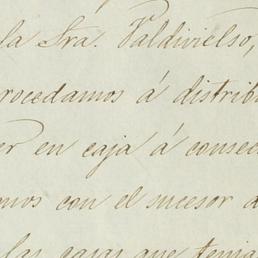 la Sra. Valdivielso,
rocedamos á distrib
er en caja á conse
mos con el sucesor d
las casas que tenia